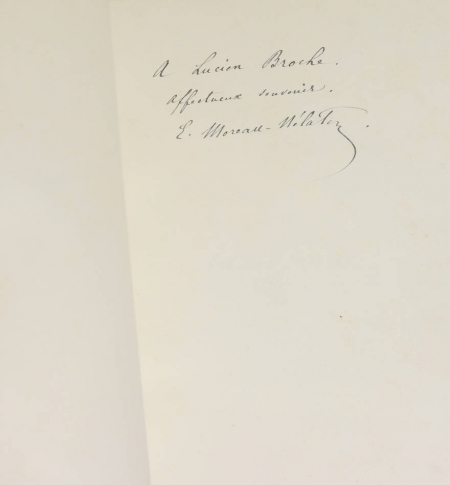 A Lucien Broche.
Affectueux souvenir.
E. Moreau-Nélaton.